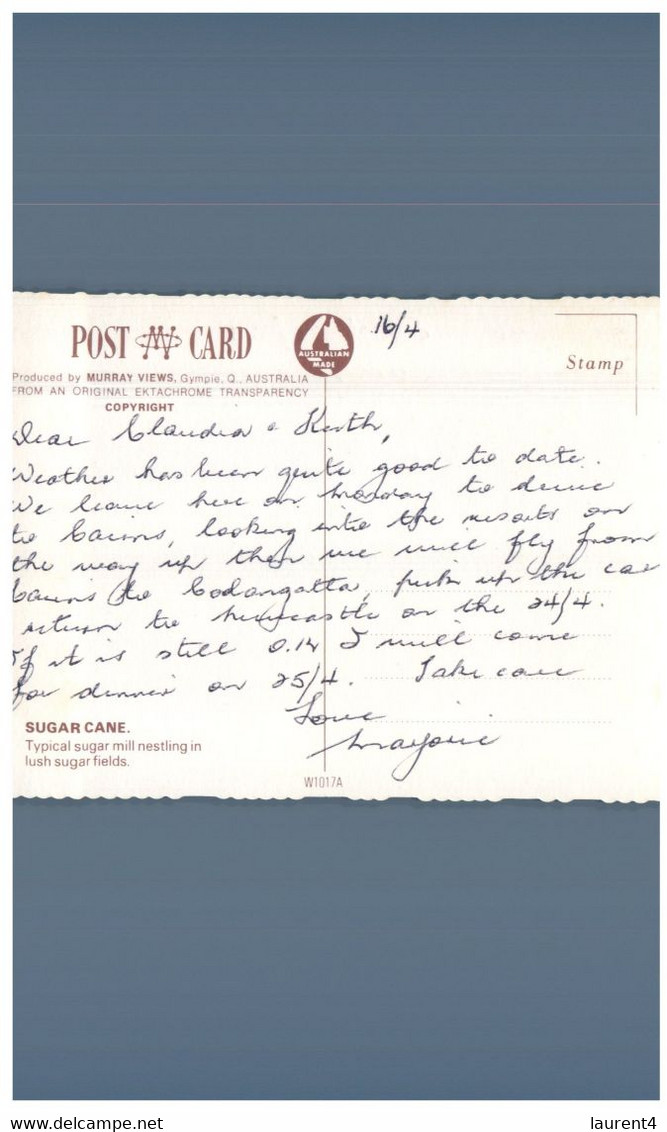 POST CARD
AUSTRALIAN
MADE
16/4
Stamp
Produced by MURRAY VIEWS, Gympie, Q., AUSTRALIA
FROM AN ORIGINAL EKTACHROME TRANSPARENCY
COPYRIGHT
Dear Claudia & Keith,
Weather has been quite good to date.
We leave here on Monday to drive
to Cairns, looking into the resorts on
the way up then we will fly from
Cairns to Coolangatta, pick up the car
return to Newcastle on the 24/4.
If it is still O.K I will come
for dinner on 25/4. Take care
Love
Marjorie
SUGAR CANE.
Typical sugar mill nestling in
lush sugar fields.
W1017A
www.delcampe.net
laurent4